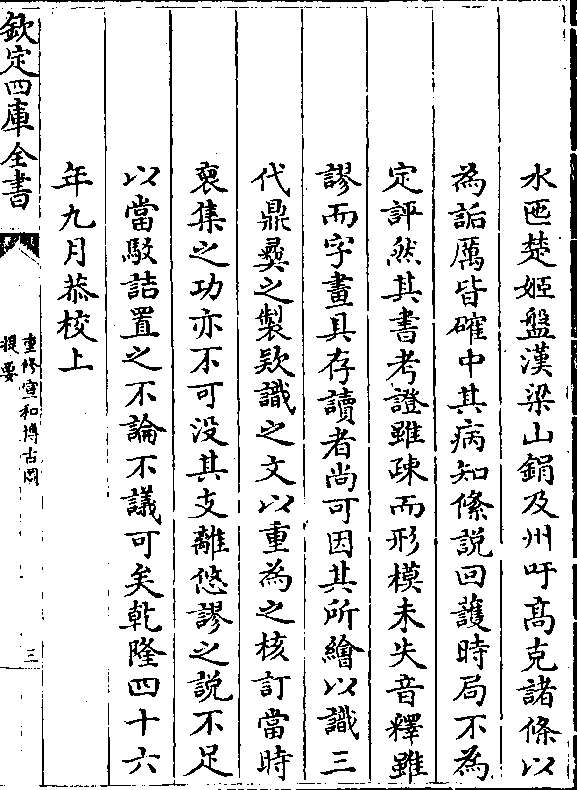 水匜楚姬盤漢梁山鋗及州吁髙克諸條以
為詬厲皆確中其病知絛説回護時局不為
定評然其書考證雖疎而形模未失音釋雖
謬而字畫具存讀者尚可因其所繪以識三
代鼎彞之製欵識之文以重為之核訂當時
裒集之功亦不可没其支離悠謬之説不足
以當駁詰置之不論不議可矣乾隆四十六
年九月恭校上
欽定四庫全書
重修宣和博古圖
提要
三